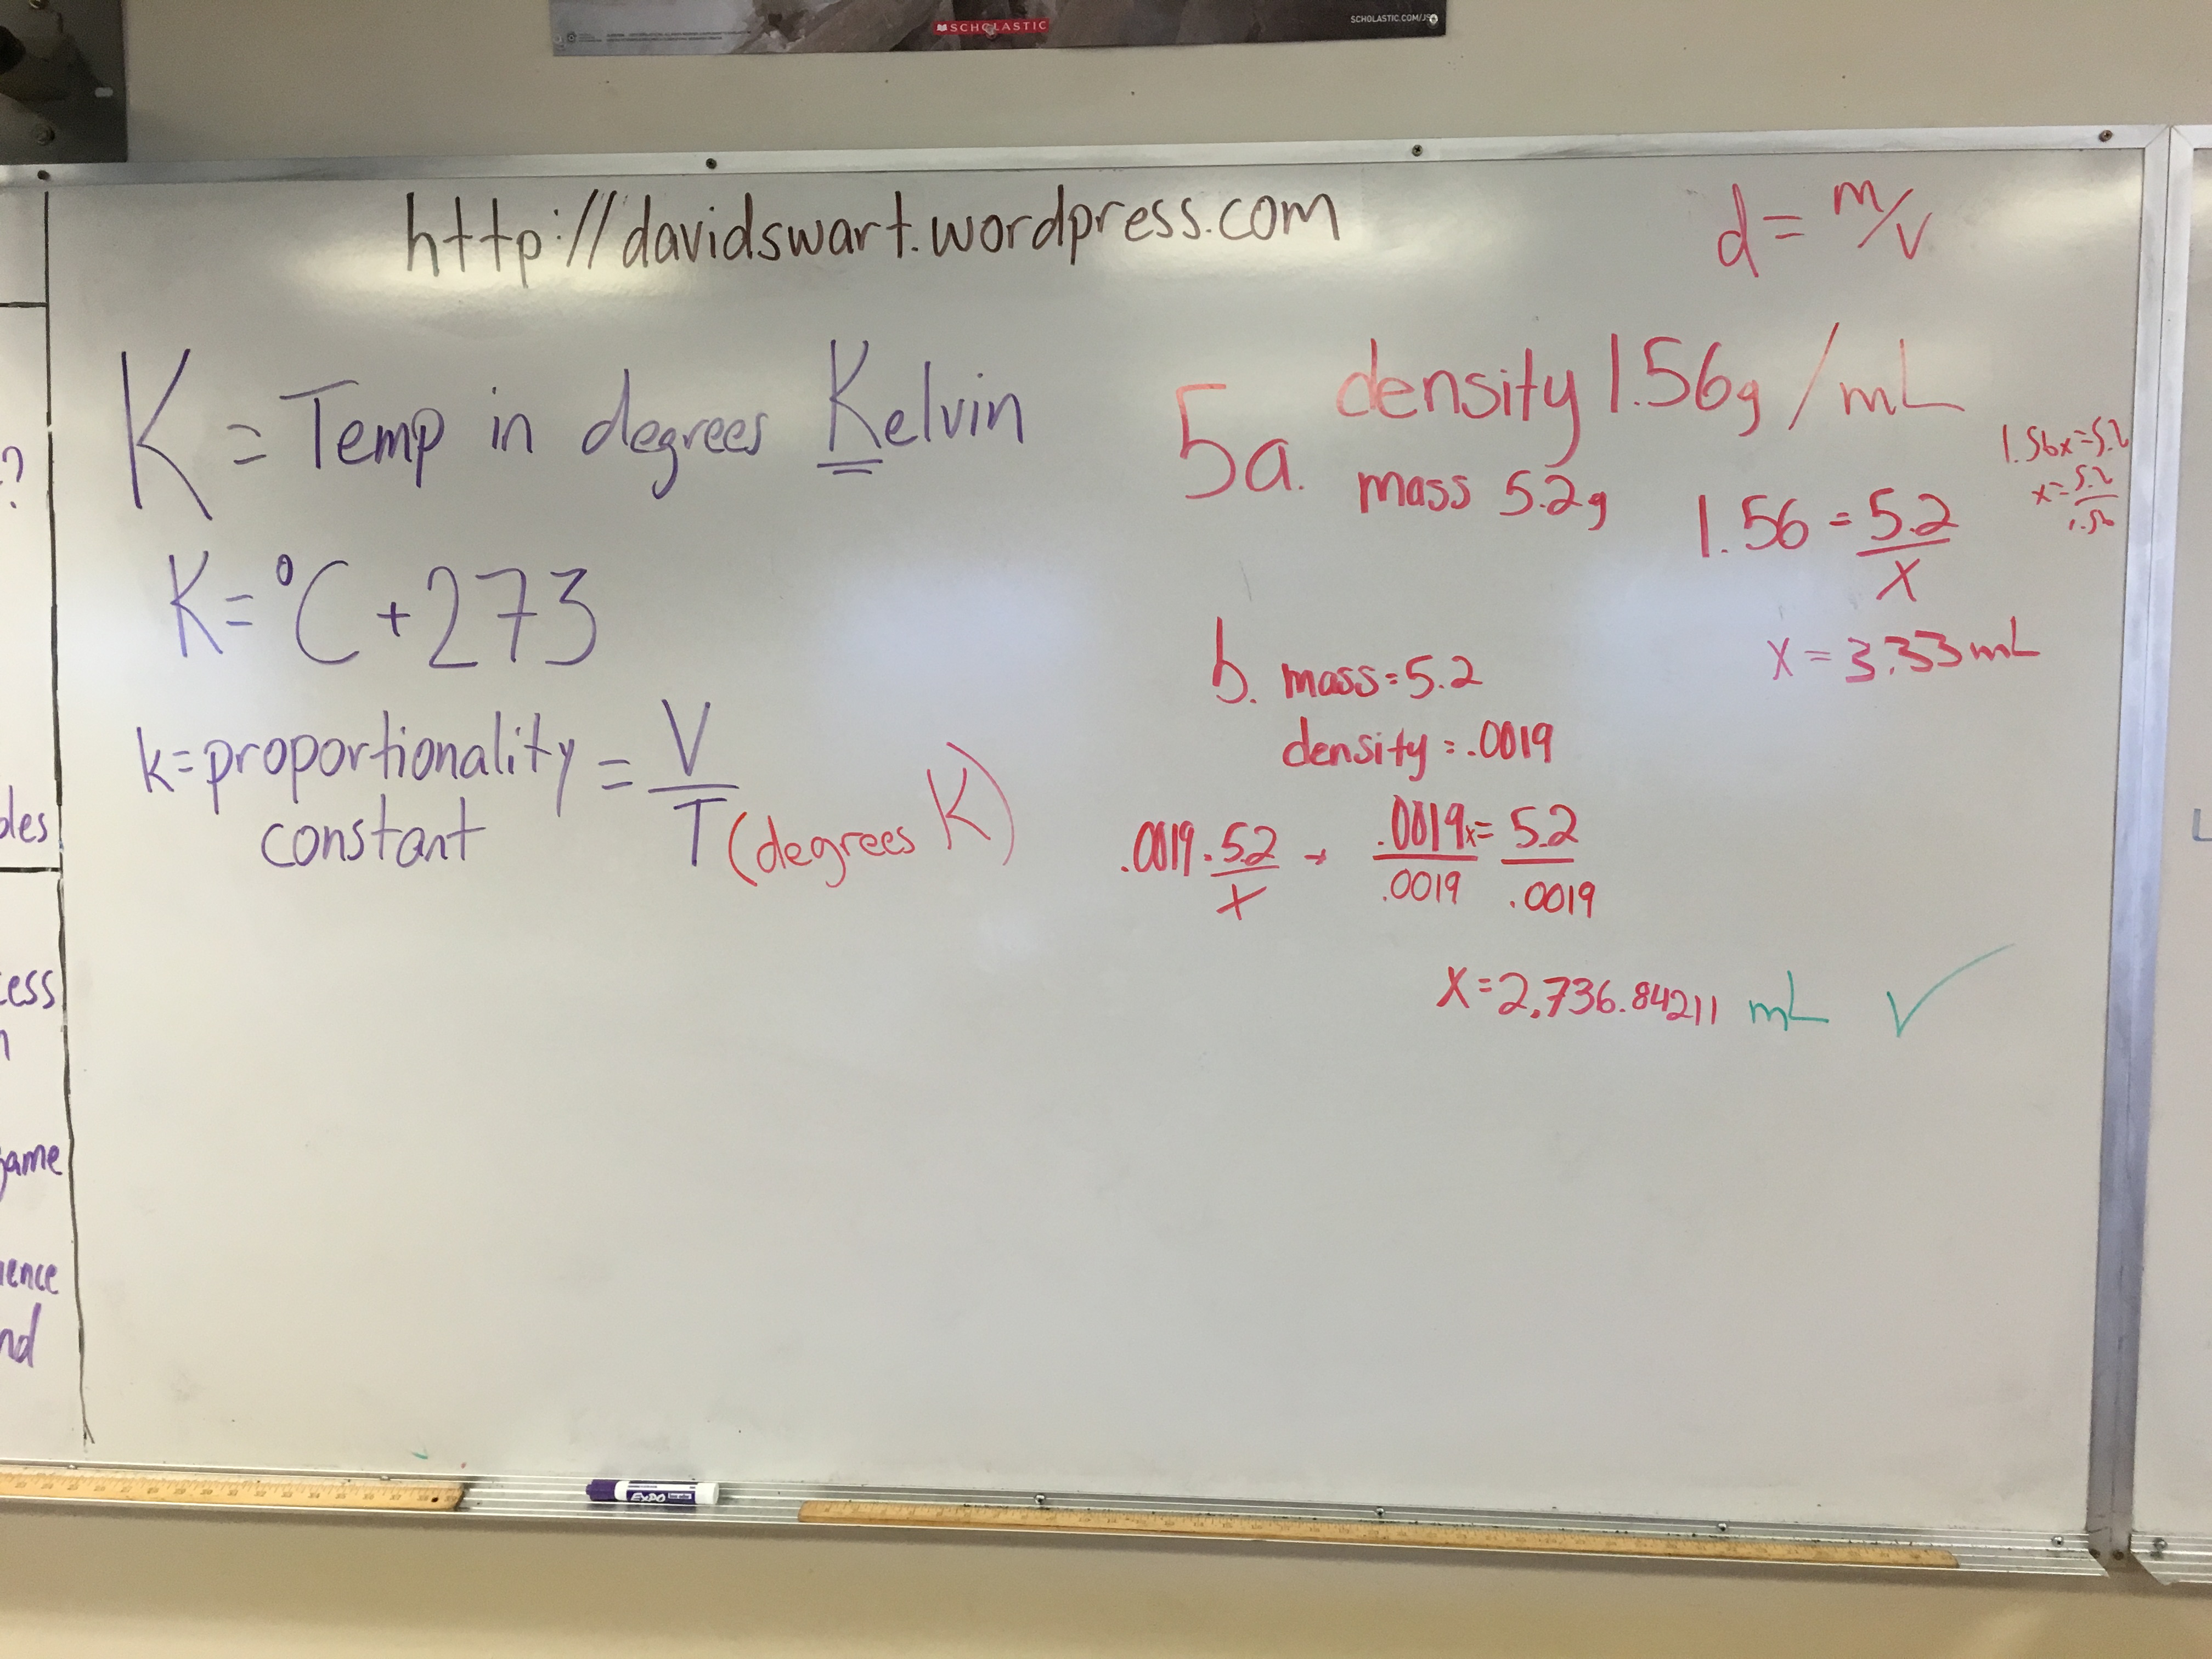 SCHOLASTIC
SCHOLASTIC.COM/JS
http://davidswart.wordpress.com
d = m/v
K = Temp in degrees Kelvin
K = °C + 273
k = proportionality constant = V/T (degrees K)
5a. density 1.56g/mL
mass 5.2g
1.56 = 5.2/X
1.56x = 5.2
x = 5.2/1.56
X = 3.33 mL
b. mass = 5.2
density = .0019
.0019 . 5.2/X → .0019x/.0019 = 5.2/.0019
X = 2,736.84211 mL ✓
?
les
cess
n
game
ience
nd
L
EXPO